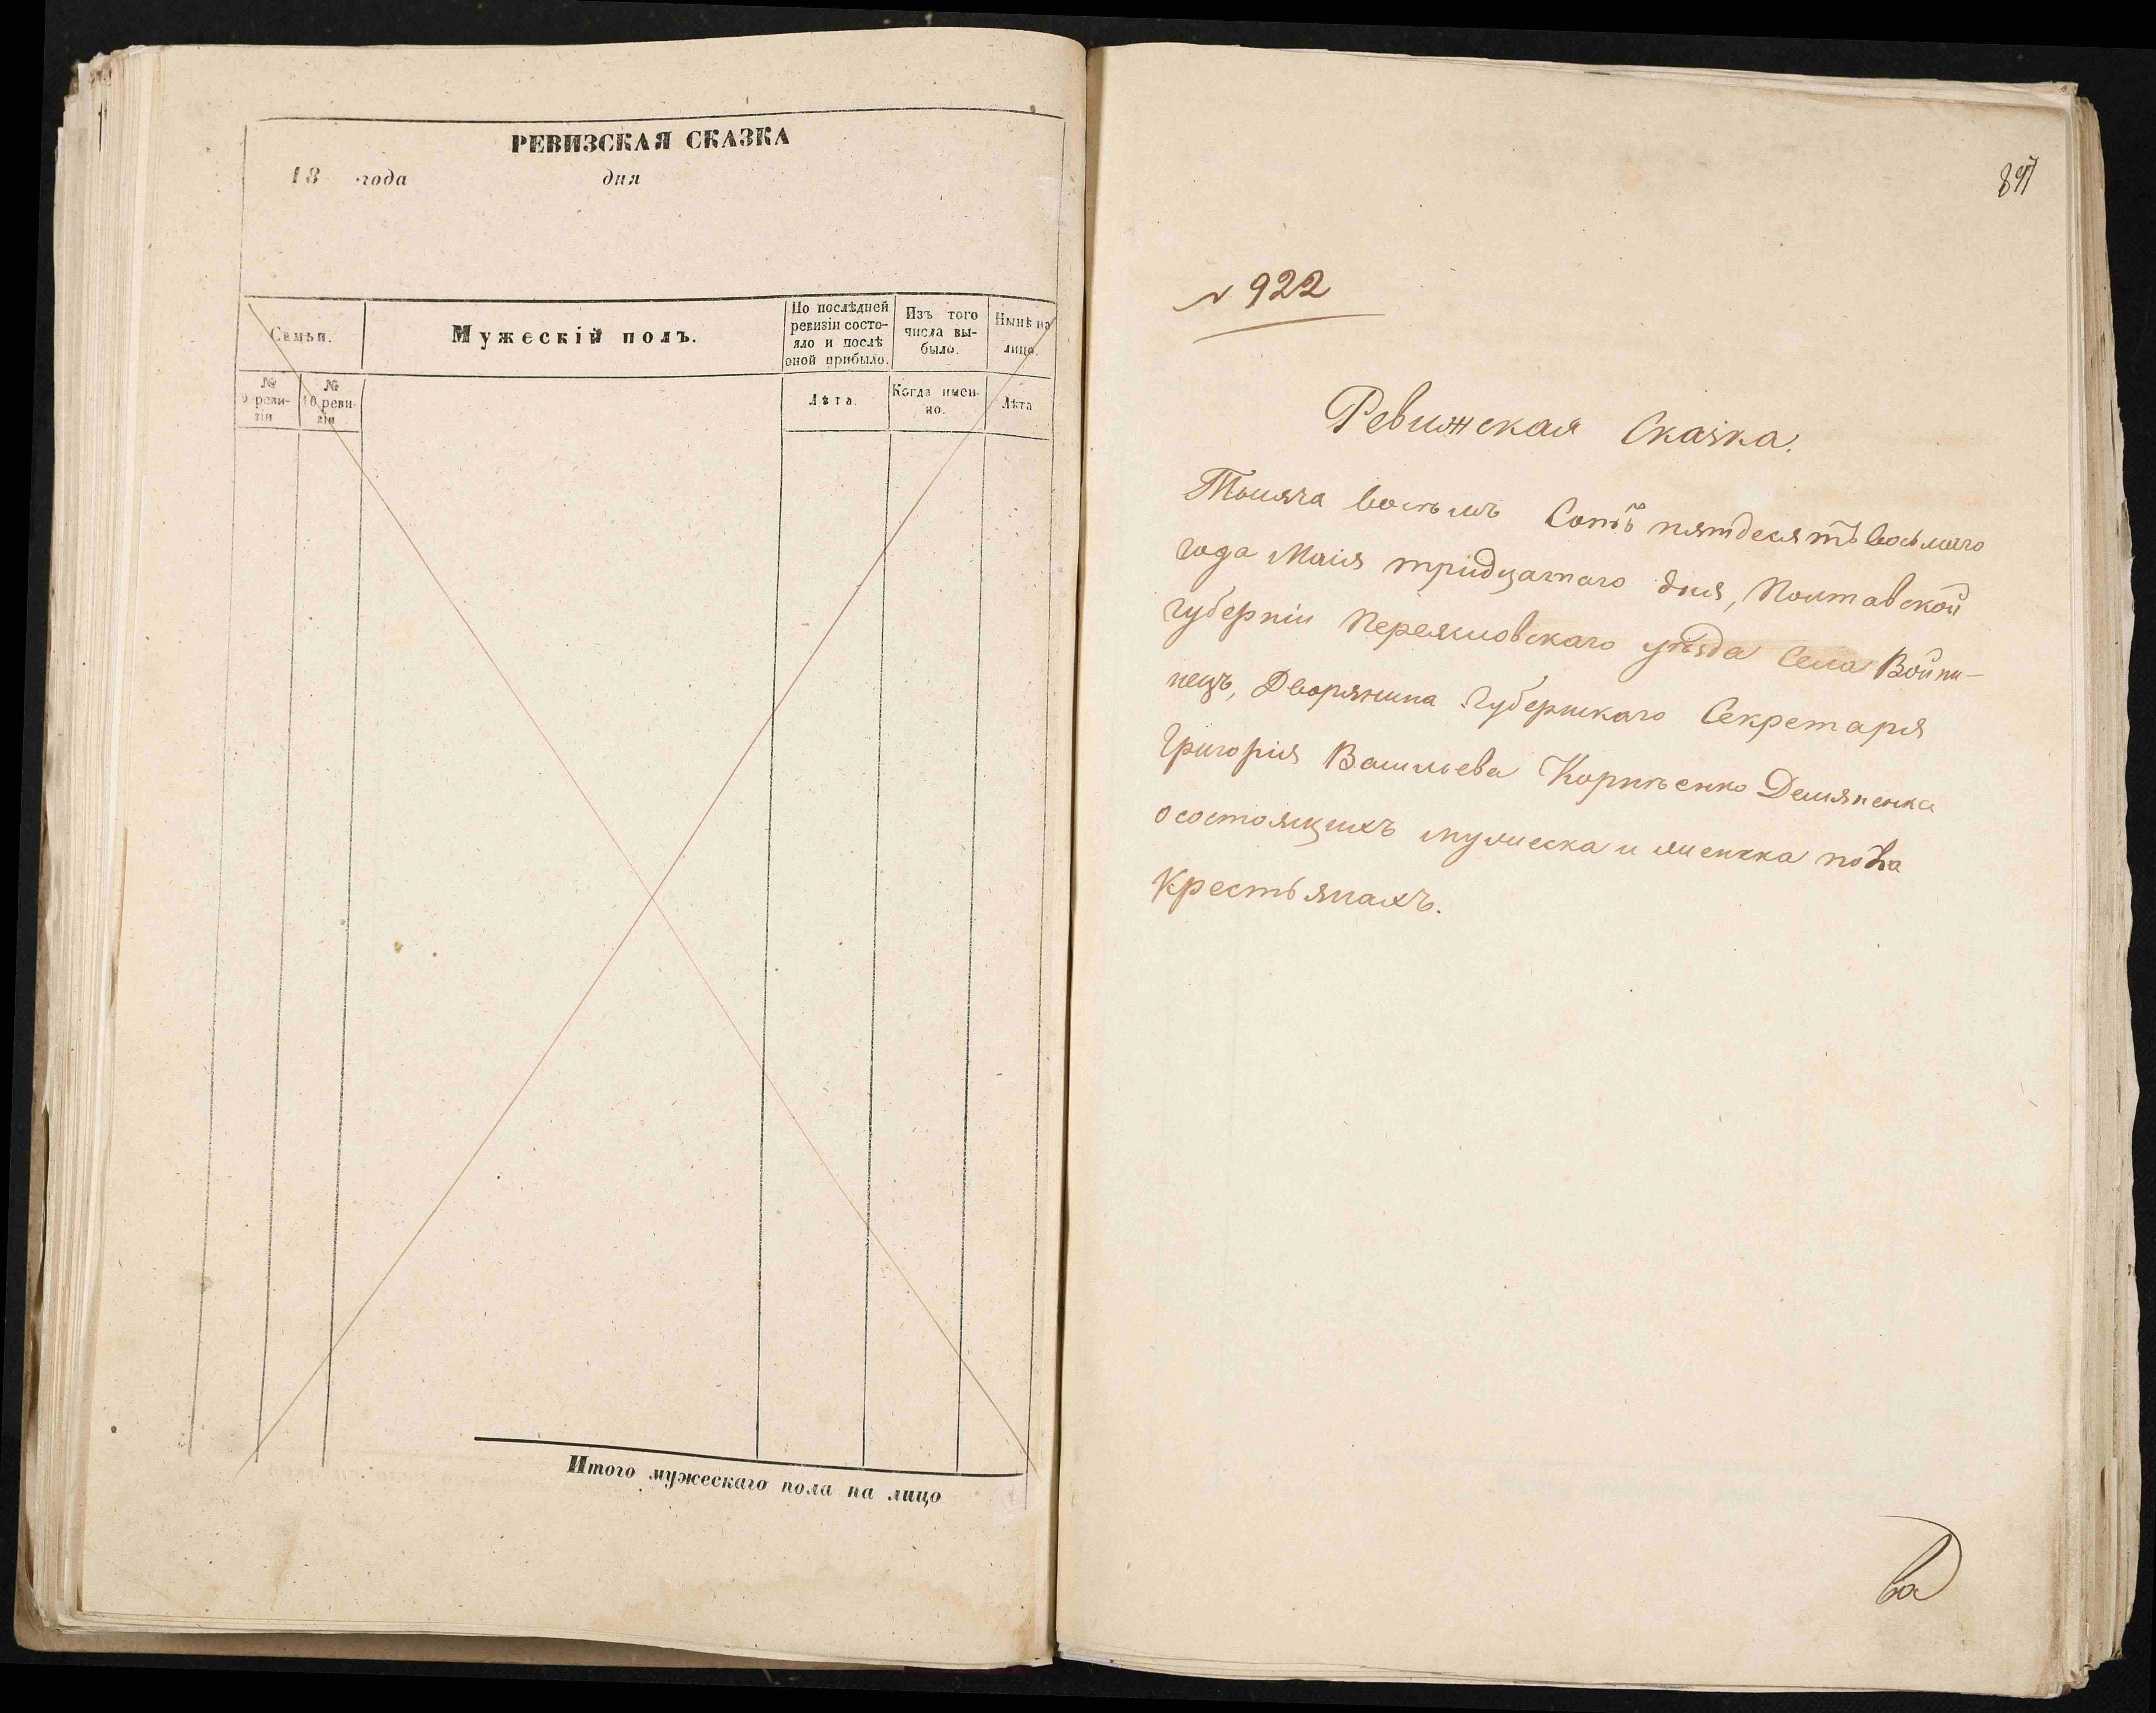 РЕВИЗСКАЯ СКАЗКА
18 года дня
Семьи.
Мужескій полъ.
По послѣдней
ревизіи состо-
яло и послѣ
оной прибыло.
Изъ того
числа вы-
было.
Нынѣ на
лицо.
№
ревизіи
№
10 реви-
зіи
Лѣта.
Когда имен-
но.
Лѣта
Итого мужескаго пола на лицо
№ 922
Ревижская Сказка.
Тысяча восемъ Сотъ пятдесятъ восьмаго
года Маія тридцатаго дня, Полтавской
губерніи Переясловскаго уѣзда Села Войни-
нецъ, Дворянина Губернскаго Секретаря
Григорія Васильева Корнѣенко Демяненка
о состоящихъ мужеска и женска пола
Крестьянахъ.
ва